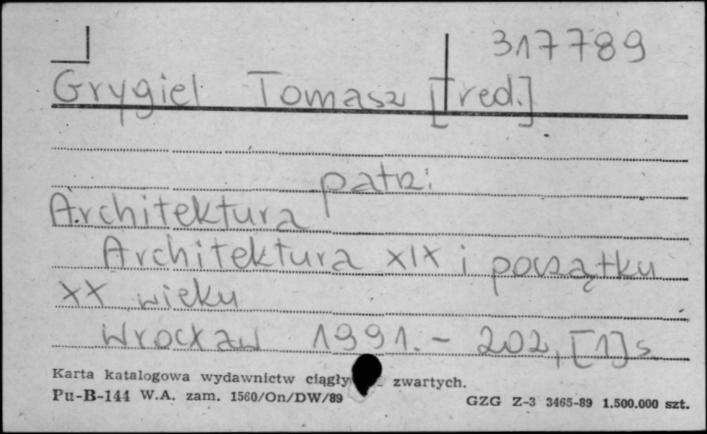 317789
Grygiel Tomasz [red.]
patrz:
Architektura
Architektura XIX i początku
XX wieku
Wrocław 1991. - 202, [1] s.
Karta katalogowa wydawnictw ciągły zwartych.
Pu-B-144 W.A. zam. 1560/On/DW/89 GZG Z-3 3465-89 1.500.000 szt.